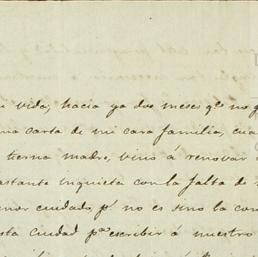 i vida; hacia ya dos meses qe no
na carta de mi cara familia, cua
tierna madre, vino á renovar
astante inquieta con la falta de
nor cuidado, pr no es sino la con
sta ciudad pa escribir á nuestro